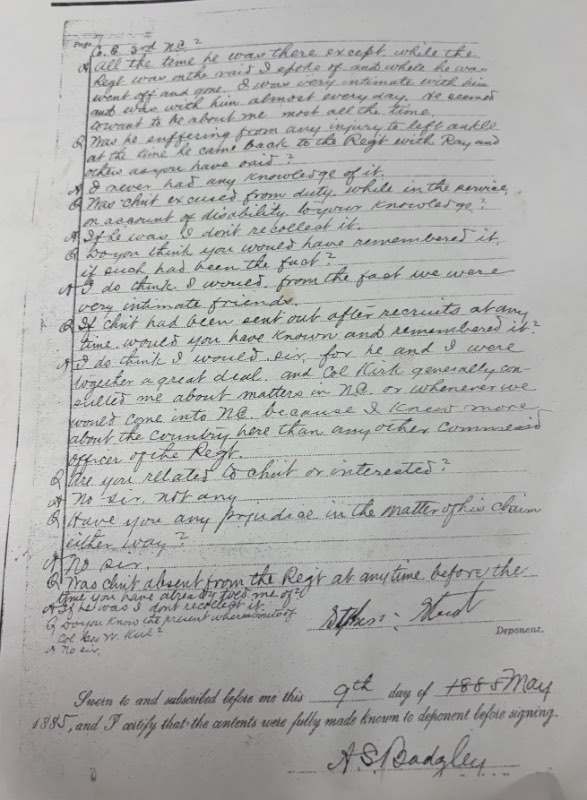 Page 7
Co. E. 3rd N.C.?
A All the time he was there except while the
Regt was on the raid I spoke of and while he was
went off and gone. I was very intimate with him
and was with him almost every day. He seemed
to want to be about me most all the time.
Q Was he suffering from any injury to left ankle
at the time he came back to the Regt with Ray and
others as you have said?
A I never had any knowledge of it.
Q Was clmt excused from duty while in the service
on account of disability to your knowledge?
A If he was I don't recollect it.
Q Do you think you would have remembered it
if such had been the fact?
A I do think I would from the fact we were
very intimate friends.
Q If clmt had been sent out after recruits at any
time would you have known and remembered it?
A I do think I would, sir, for he and I were
together a great deal. and Col Kirk generally con-
sulted me about matters in N.C. or whenever we
would come into N.C. because I knew more
about the country here than any other commissd
officer of the Regt.
Q Are you related to clmt or interested?
A No sir, not any
Q Have you any prejudice in the matter of his claim
either way?
A No sir.
Q Was clmt absent from the Regt at any time before the
time you have already told me of?
A If he was I dont recollect it.
Q Do you know the present whereabouts of
Col Geo W. Kirk?
A No sir.
Deponent.
Sworn to and subscribed before me this 9th day of 1885 May
1885, and I certify that the contents were fully made known to deponent before signing.
A.S. Badgley